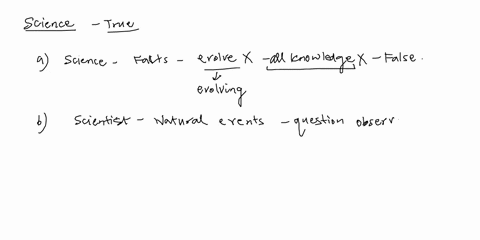 Science - True
a) Science - Facts - evolve X - all knowledge X - False.
evolving
b) Scientist - Natural events - question observ